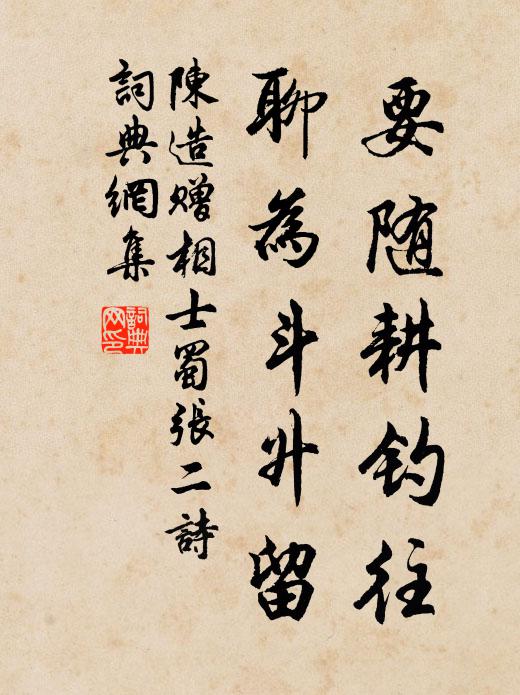 要随耕钓往
聊為斗升留
陳造贈相士蜀張二詩
詞典網集
詞典網印